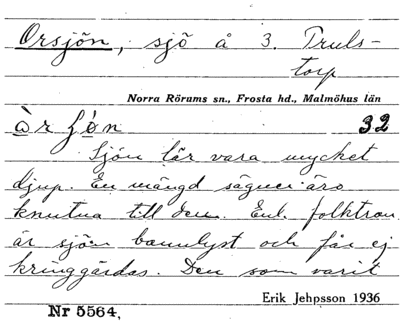 Orsjön, sjö å 3. Truls-
torp
Norra Rörums sn., Frosta hd., Malmöhus län
32
Sjön lär vara mycket
djup. En mängd sägner äro
knutna till den. Enl. folktron
är sjön bannlyst och får ej
kringgärdas. Den som varit
Erik Jehpsson 1936
Nr 5564,